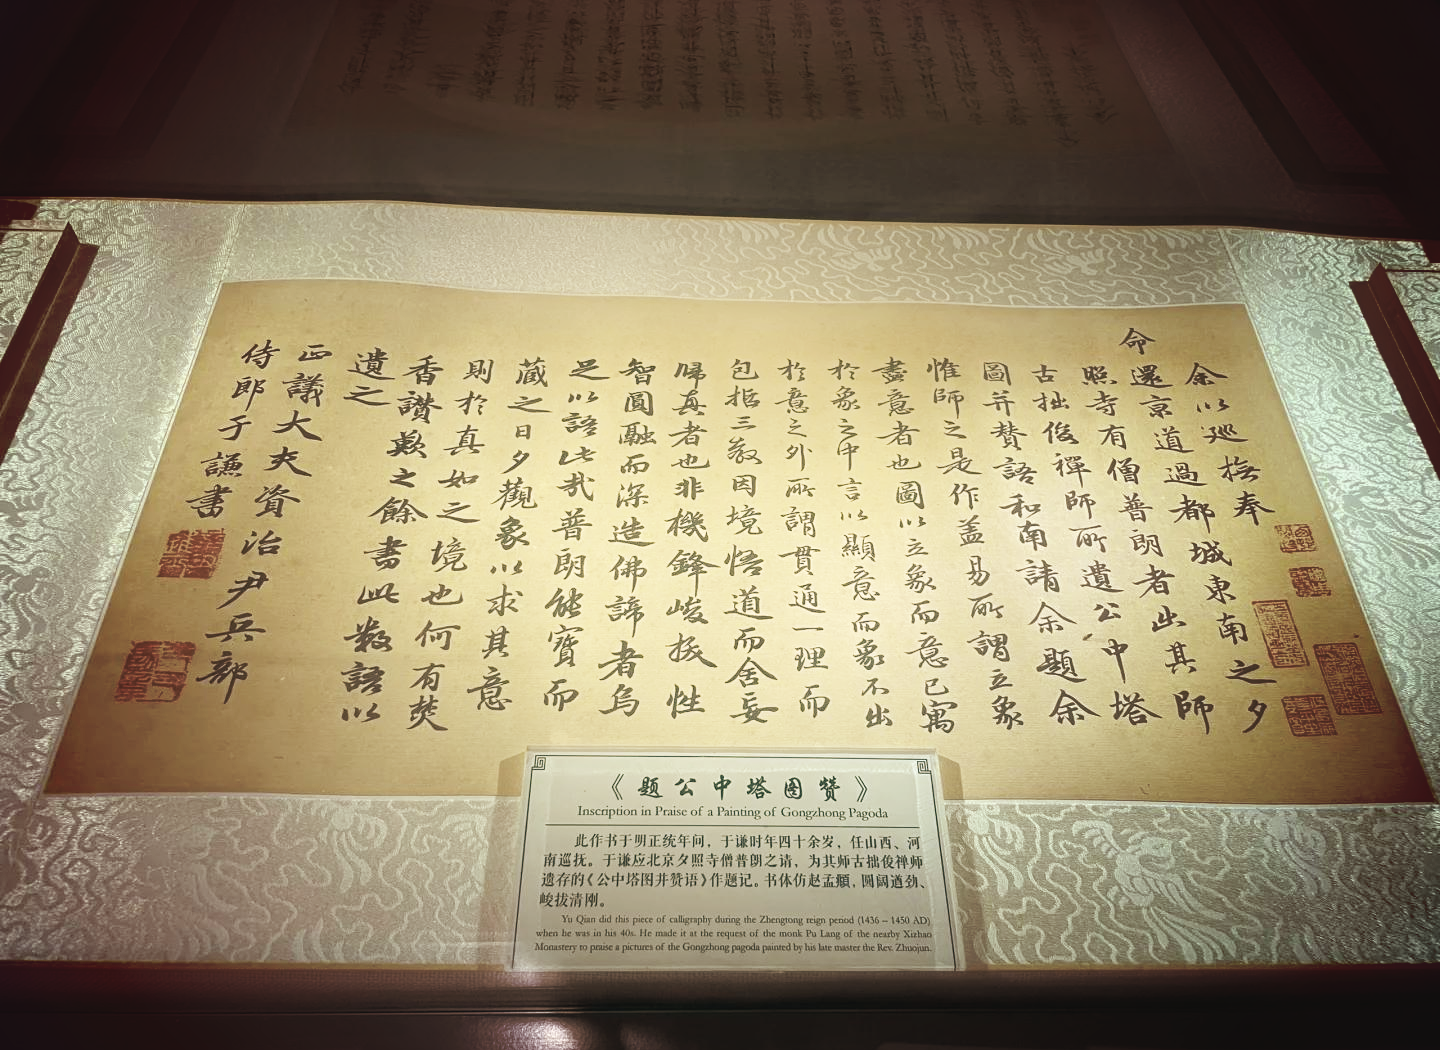 余以巡撫奉
命還京道過都城東南之夕
照寺有僧普朗者出其師
古拙俊禪師所遺公中塔
圖并賛語和南請余題余
惟師之是作蓋易所謂立象
盡意者也圖以立象而意已寓
於象之中言以顯意而象不出
於意之外所謂貫通一理而
包括三教因境悟道而舍妄
歸真者也非機鋒峻拔性
智圓融而深造佛諦者烏
足以語此哉普朗能寶而
藏之日夕觀象以求其意
則於真如之境也何有焚
香讚歎之餘書此數語以
遺之
正議大夫資治尹兵部
侍郎于謙書
《题公中塔图赞》
Inscription in Praise of a Painting of Gongzhong Pagoda
此作书于明正统年间，于谦时年四十余岁，任山西、河
南巡抚。于谦应北京夕照寺僧普朗之请，为其师古拙俊禅师
遗存的《公中塔图并赞语》作题记。书体仿赵孟頫，圆阔遒劲、
峻拔清刚。
Yu Qian did this piece of calligraphy during the Zhengtong reign period (1436 – 1450 AD)
when he was in his 40s. He made it at the request of the monk Pu Lang of the nearby Xizhao
Monastery to praise a pictures of the Gongzhong pagoda painted by his late master the Rev. Zhuojun.